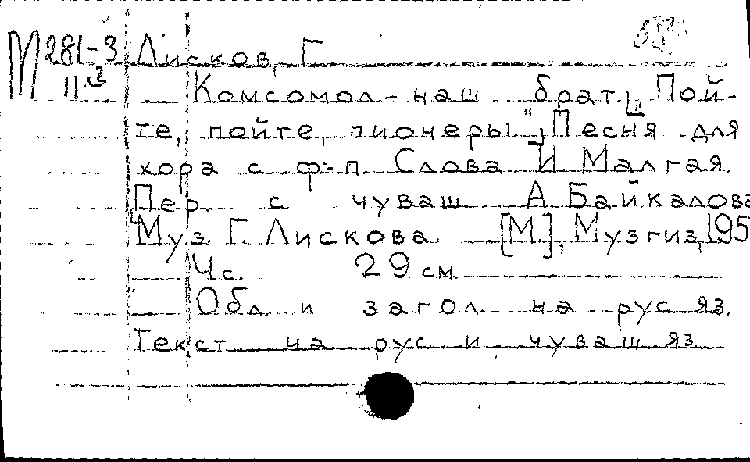 М 281-3 Лисков, Г.
11.3 Комсомол - наш брат. [„Пой-
те, пойте, пионеры"] Песня для
хора с ф-п. Слова И Малгая.
Пер. с чуваш А Байкалова
[Муз Г. Лискова. [М], Музгиз, 195
4с. 29 см.
Обл и загол на рус яз.
Текст на рус и чуваш яз